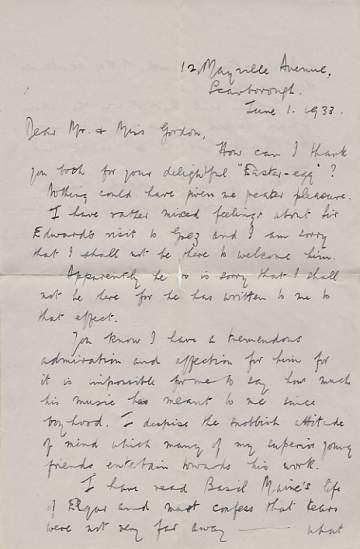 12, Mayville Avenue,
Scarborough.
June 1. 1933.
Dear Mr. & Miss Gordon,
How can I thank
you both for your delightful "Easter-egg"?
Nothing could have given me greater pleasure.
I have rather mixed feelings about Sir
Edward's visit to and I am sorry
that I shall not be there to welcome him.
Apparently he is sorry that I shall
not be here for he has written to me to
that effect.
You know I have a tremendous
admiration and affection for him for
it is impossible for me to say how much
his music has meant to me since
boyhood. I despise the snobbish attitude
of mind which many of my superior young
friends entertain towards his work.
I have read Basil Maine's life
of Elgar and must confess that tears
were not very far away — what